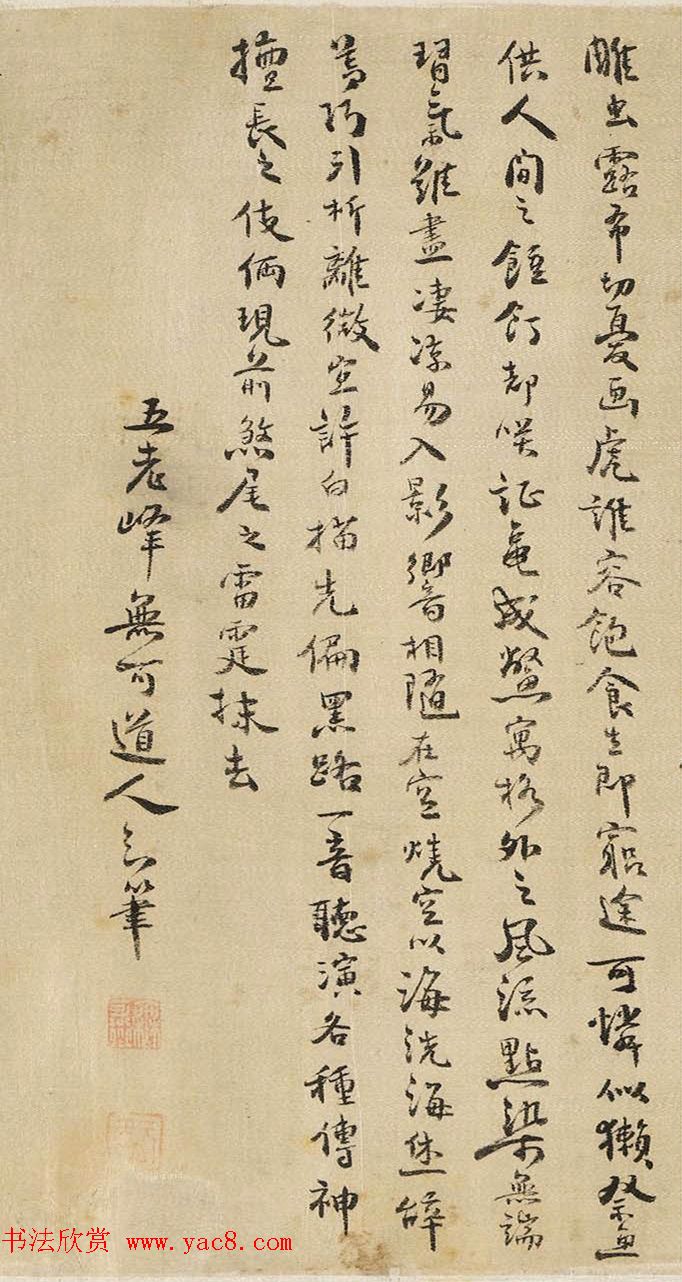 雕虫露布切憂画虎誰容飽食生即窮途可憐似獺祭魚
供人間之飣都咲証龜成鱉寓格外之風流點染無端
習氣難盡凄涼易入影響相隨在空燒空以海洗海
巧引析離微豈許白描先偏黑路一音聽演各種傳神
擅長之伎倆現前煞尾之雷霆抹去
五老峰無可道人合筆
书法欣赏 www.yac8.com